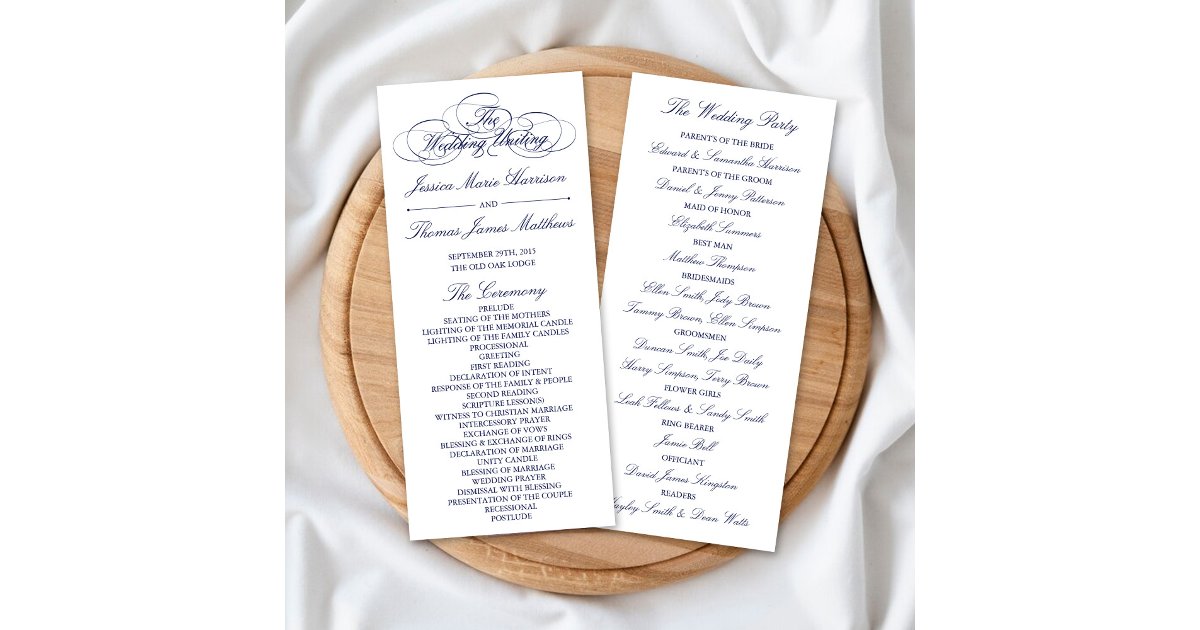 The
Wedding Uniting
Jessica Marie Harrison
AND
Thomas James Matthews
SEPTEMBER 29TH, 2015
THE OLD OAK LODGE
The Ceremony
PRELUDE
SEATING OF THE MOTHERS
LIGHTING OF THE MEMORIAL CANDLE
LIGHTING OF THE FAMILY CANDLES
PROCESSIONAL
GREETING
FIRST READING
DECLARATION OF INTENT
RESPONSE OF THE FAMILY & PEOPLE
SECOND READING
SCRIPTURE LESSON(S)
WITNESS TO CHRISTIAN MARRIAGE
INTERCESSORY PRAYER
EXCHANGE OF VOWS
BLESSING & EXCHANGE OF RINGS
DECLARATION OF MARRIAGE
UNITY CANDLE
BLESSING OF MARRIAGE
WEDDING PRAYER
DISMISSAL WITH BLESSING
PRESENTATION OF THE COUPLE
RECESSIONAL
POSTLUDE
The Wedding Party
PARENT'S OF THE BRIDE
Edward & Samantha Harrison
PARENT'S OF THE GROOM
Daniel & Jenny Patterson
MAID OF HONOR
Elizabeth Summers
BEST MAN
Matthew Thompson
BRIDESMAIDS
Ellen Smith, Jody Brown
Tammy Brown, Ellen Simpson
GROOMSMEN
Duncan Smith, Joe Daily
Harry Simpson, Terry Brown
FLOWER GIRLS
Leah Fellows & Sandy Smith
RING BEARER
Jamie Bell
OFFICIANT
David James Kingston
READERS
Smith & Dean Watts